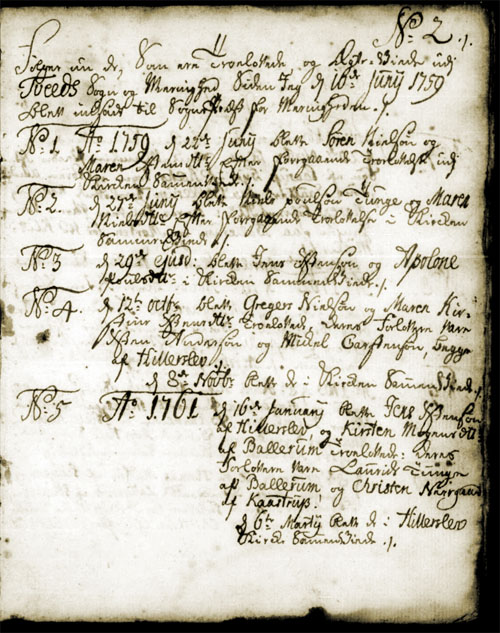 No: 2.
Følger nu de, Som ere Troelovede og Ægte-Viede udj
Tveeds Sogn og Menighed Siden Jeg d 16de Junij 1759
blev indsadt til Sogne Præst for Menigheden.
No. 1. Ao 1759 d 22de Junij blefv Sören Nielsøn og
Maren efter Forregaaende Troelovelse udj
Kircken Sammenviede.
No. 2. d 27de Junij blefv Niels Poulsøn Tunge og Maren
Nielsdtr efter Forregaaende Troelovelse i Kircken
Sammenviede.
No. 3 d 29de blefv Jens og Apolone
Poulsdtr i Kircken Sammenviede.
No. 4. d 12te octbr blefv Gregers Nielsøn og Maren Kir-
stine Troelovede, Deres Forlovere Vare
Andersøn og Michel Carstensøn, begge
af Hillerslev
d 8de Novbr blefv de i Kircken Sammenviede.
No. 5 Ao 1761 d 16de Januarij blefv Jens
af Hillerslev, og Kirsten Mogensdtr
af Ballerum Troelovede: Deres
Forlovere Vare Laurids Tunge
af Ballerum og Christen Nørgaard
af Kaastrup.
d 6te Martij blefv de i Hillerslev
Kircke Sammenviede.